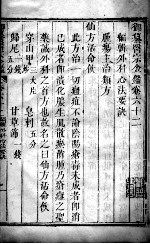 御纂醫宗金鑑卷六十二
編輯外科心法要訣
腫瘍主治類方
仙方活命飲
此方治一切瘡瘍未成者即消
已成者即潰化膿生肌散瘀消腫乃瘡癰之聖
藥誠外科之首方也故名之曰仙方活命飲
穿山甲三大片 皂刺五分
歸尾一錢五分 甘草節一錢